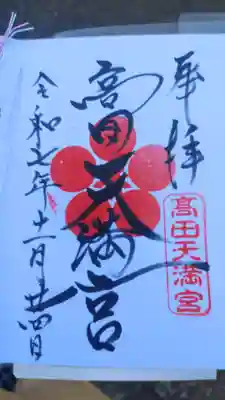 奉拝
髙田天満宮
高田天満宮
令和七年十一月廿四日